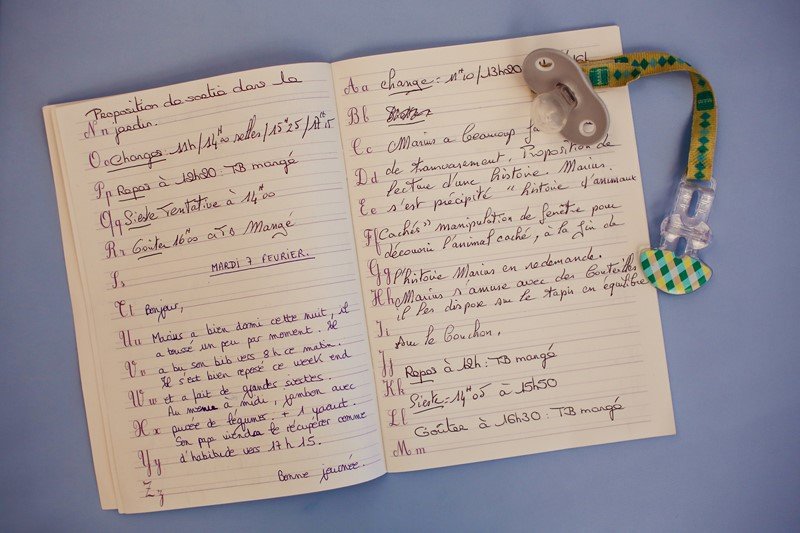 Proposition de sortie dans le
N n jardin.
O o Changes : 11h / 14H00 selles / 15H25 / 17H15
P p Repas à 12h20 : TB mangé
Q q Sieste tentative à 14H00
R r Goûter 16H00 TB Mangé
S s
MARDI 7 FEVRIER.
T t Bonjour,
U u Marius a bien dormi cette nuit, il
a toussé un peu par moment. Il
V v a bu son bib vers 8h ce matin.
Il s'est bien reposé ce week end
W w et a fait de grandes siestes.
Au menu à midi, jambon avec
X x purée de légumes + 1 yaourt.
Son papa viendra le récupérer comme
Y y d'habitude vers 17h15.
Z z Bonne journée.
A a change : 11H10 / 13h20
B b
C c Marius a beaucoup
D d de transvasement. Proposition de
lecture d'une histoire. Marius
E e s'est précipité "histoire d'animaux
F f Cachés" manipulation de fenêtre pour
découvrir l'animal caché, à la fin de
G g l'histoire Marius en redemande.
H h Marius s'amuse avec des bouteilles
il les dispose sur le tapis en équilibre
I i sur le bouchon.
J j Repas à 12h : TB mangé
K k Sieste : 14H05 à 15h50
L l Goûter à 16h30 : TB mangé
M m